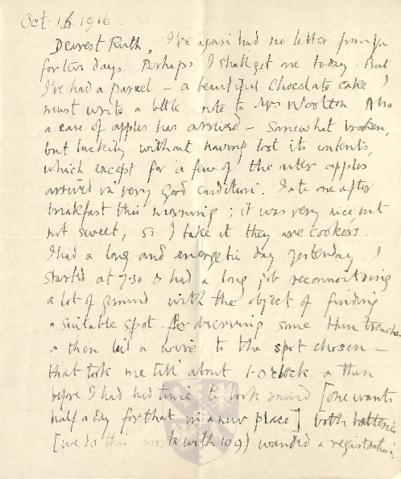 Oct. 16 1916.
Dearest Ruth, I've again had no letter from you
for two days. Perhaps I shall get one today. But
I've had a parcel – a beautiful chocolate cake. I
must write a little note to Mrs Woolton. Also
a case of apples has arrived – somewhat broken,
but luckily without having lost its contents,
which except for a few of the outer apples
arrived in very good condition. I ate one after
breakfast this morning; it was very nice but
not sweet, so I take it they are cookers.
I had a long and energetic day yesterday. I
started at 7.30 & had a long job reconnoitring
a lot of ground with the object of finding
a suitable spot for observing some Hun trenches
& then laid a wire to the spot chosen –
that took me till about 1 o'clock & then
before I had had time to look round [one wants
half a day for that in a new place] both batteries
[we do this work with 109) wanted a registration